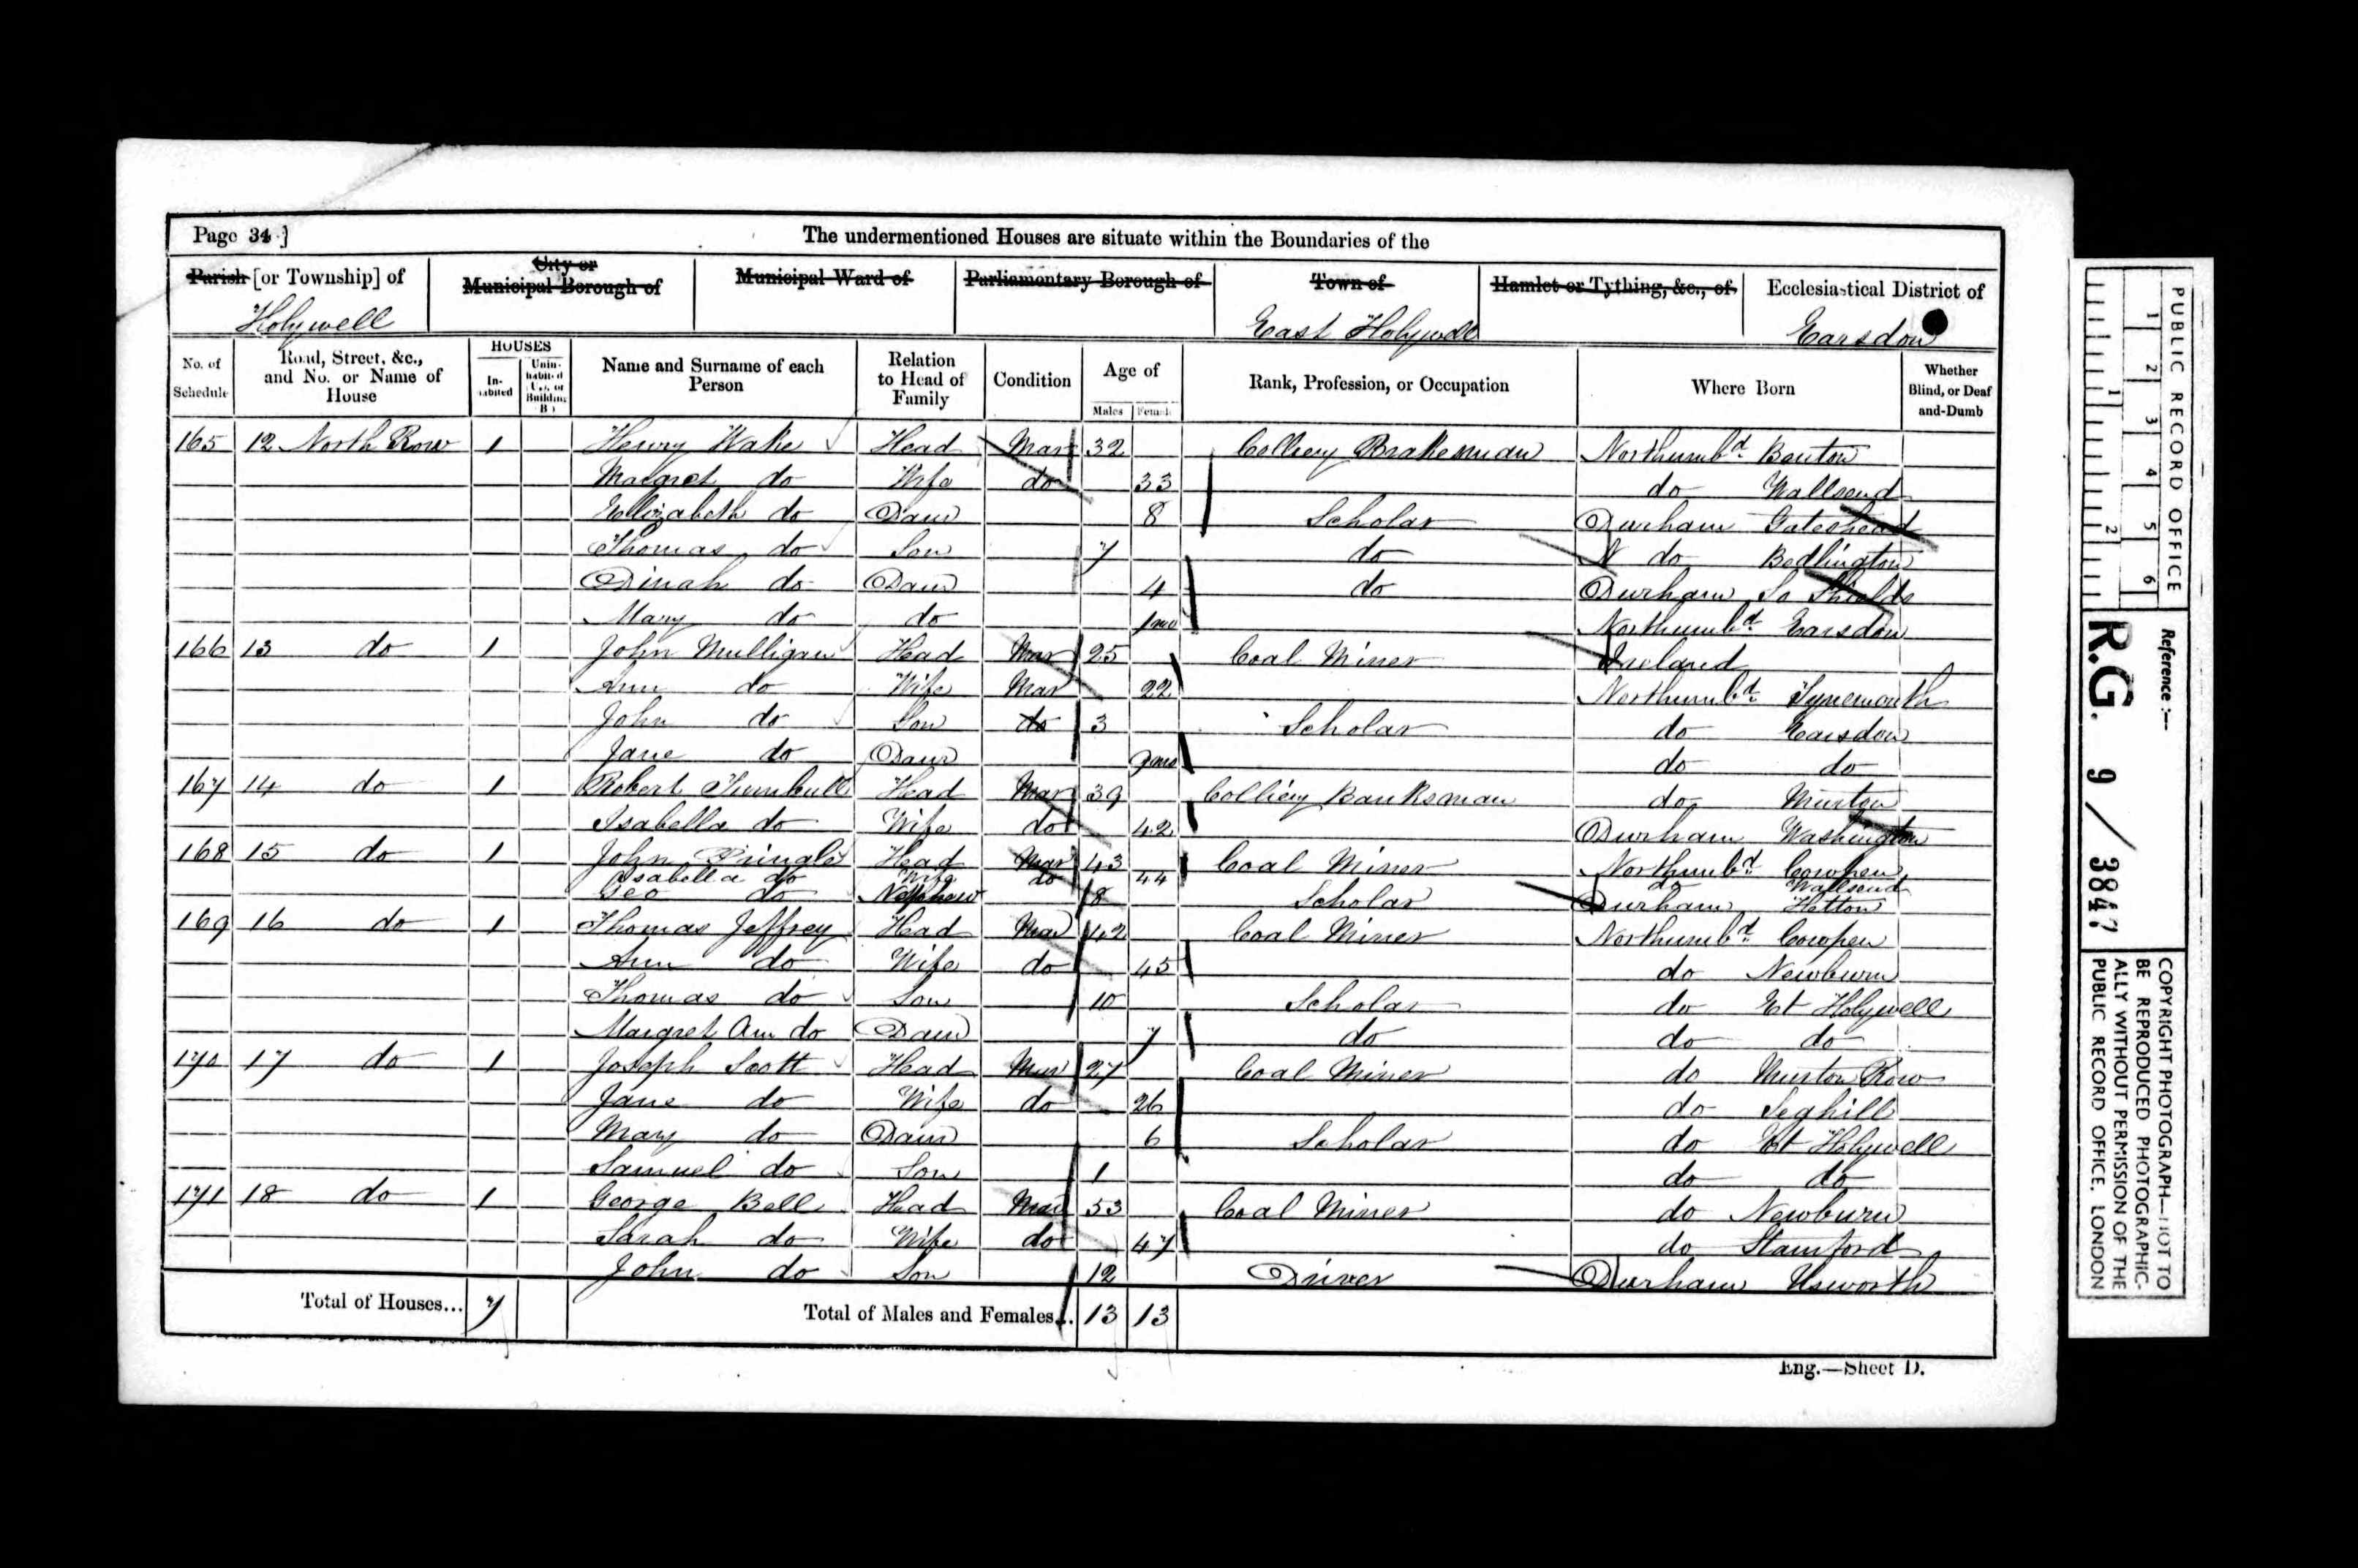 Page 34]
The undermentioned Houses are situate within the Boundaries of the
Parish [or Township] of
City or Municipal Borough of
Municipal Ward of
Parliamentary Borough of
Town of
Hamlet or Tything, &c., of
Ecclesiastical District of
Holywell East Holywell Earsdon
No. of Schedule
Road, Street, &c., and No. or Name of House
HOUSES
In-habited
Unin-habited (U.), or Building (B.)
Name and Surname of each Person
Relation to Head of Family
Condition
Age of
Males Females
Rank, Profession, or Occupation
Where Born
Whether Blind, or Deaf-and-Dumb
165 12 North Row 1 Henry Wake Head Mar 32 Colliery Brakesman Northumbd Benton
Margret do Wife do 33 do Wallsend
Ellizabeth do Daur 8 Scholar Durham Gateshead
Thomas do Son 7 do N do Bedlington
Dinah do Daur 4 do Durham So Shields
Mary do do 1mo Northumbd Earsdon
166 13 do 1 John Mulligan Head Mar 25 Coal Miner Ireland
Ann do Wife Mar 22 Northumbd Tynemouth
John do Son do 3 Scholar do Earsdon
Jane do Daur 9mo do do
167 14 do 1 Robert Turnbull Head Mar 39 Colliery Banksman do Murton
Isabella do Wife do 42 Durham Washington
168 15 do 1 John Pringle Head Mar 43 Coal Miner Northumbd Cowpen
Isabella do Wife do 44 do Wallsend
Geo do Nephew 8 Scholar Durham Hetton
169 16 do 1 Thomas Jeffrey Head Mar 42 Coal Miner Northumbd Cowpen
Ann do Wife do 45 do Newburn
Thomas do Son 10 Scholar do Et Holywell
Margret Ann do Daur 7 do do do
170 17 do 1 Joseph Scott Head Mar 27 Coal Miner do Murton Row
Jane do Wife do 26 do Seghill
Mary do Daur 6 Scholar do Et Holywell
Samuel do Son 1 do do
171 18 do 1 George Bell Head Mar 53 Coal Miner do Newburn
Sarah do Wife do 47 do Stamford
John do Son 12 Driver Durham Usworth
Total of Houses... 7 Total of Males and Females... 13 13
Eng.—Sheet D.
PUBLIC RECORD OFFICE
1 2 3 4 5 6
1 2
Reference :—
R.G. 9/3847
COPYRIGHT PHOTOGRAPH—NOT TO
BE REPRODUCED PHOTOGRAPHIC-
ALLY WITHOUT PERMISSION OF THE
PUBLIC RECORD OFFICE, LONDON